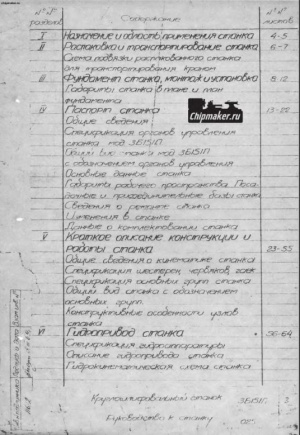 Chipmaker.ru
N° N° разделов
Содержание
N° N° листов
I Назначение и область применения станка 4-5
II Распаковка и транспортирование станка 6-7
Схема подвески распакованного станка
для транспортирования краном
III Фундамент станка, монтаж и установка 8-12
Габариты станка в плане и план
фундамента
IV Паспорт станка 13-22
Chipmaker.ru
Общие сведения
Спецификация органов управления
станка мод 3Б151П
Общий вид станка мод 3Б151П
с обозначением органов управления
Основные данные станка
Габариты рабочего пространства. Поса-
дочные и присоединительные базы станка
Сведения о ремонте станка
Изменения в станке
Данные о комплектовании станка
V Краткое описание конструкции и
работы станка 23-55
Общие сведения о кинематике станка
Спецификация шестерен, червяков, гаек
Спецификация основных групп станка
Общий вид станка с обозначением
основных групп.
Конструктивные особенности узлов
станка
VI Гидропривод станка 56-64
Спецификация гидроаппаратуры
Описание гидропривода станка
Гидрокинематическая схема станка
Круглошлифовальный станок 3Б151П 2
Руководство к станку